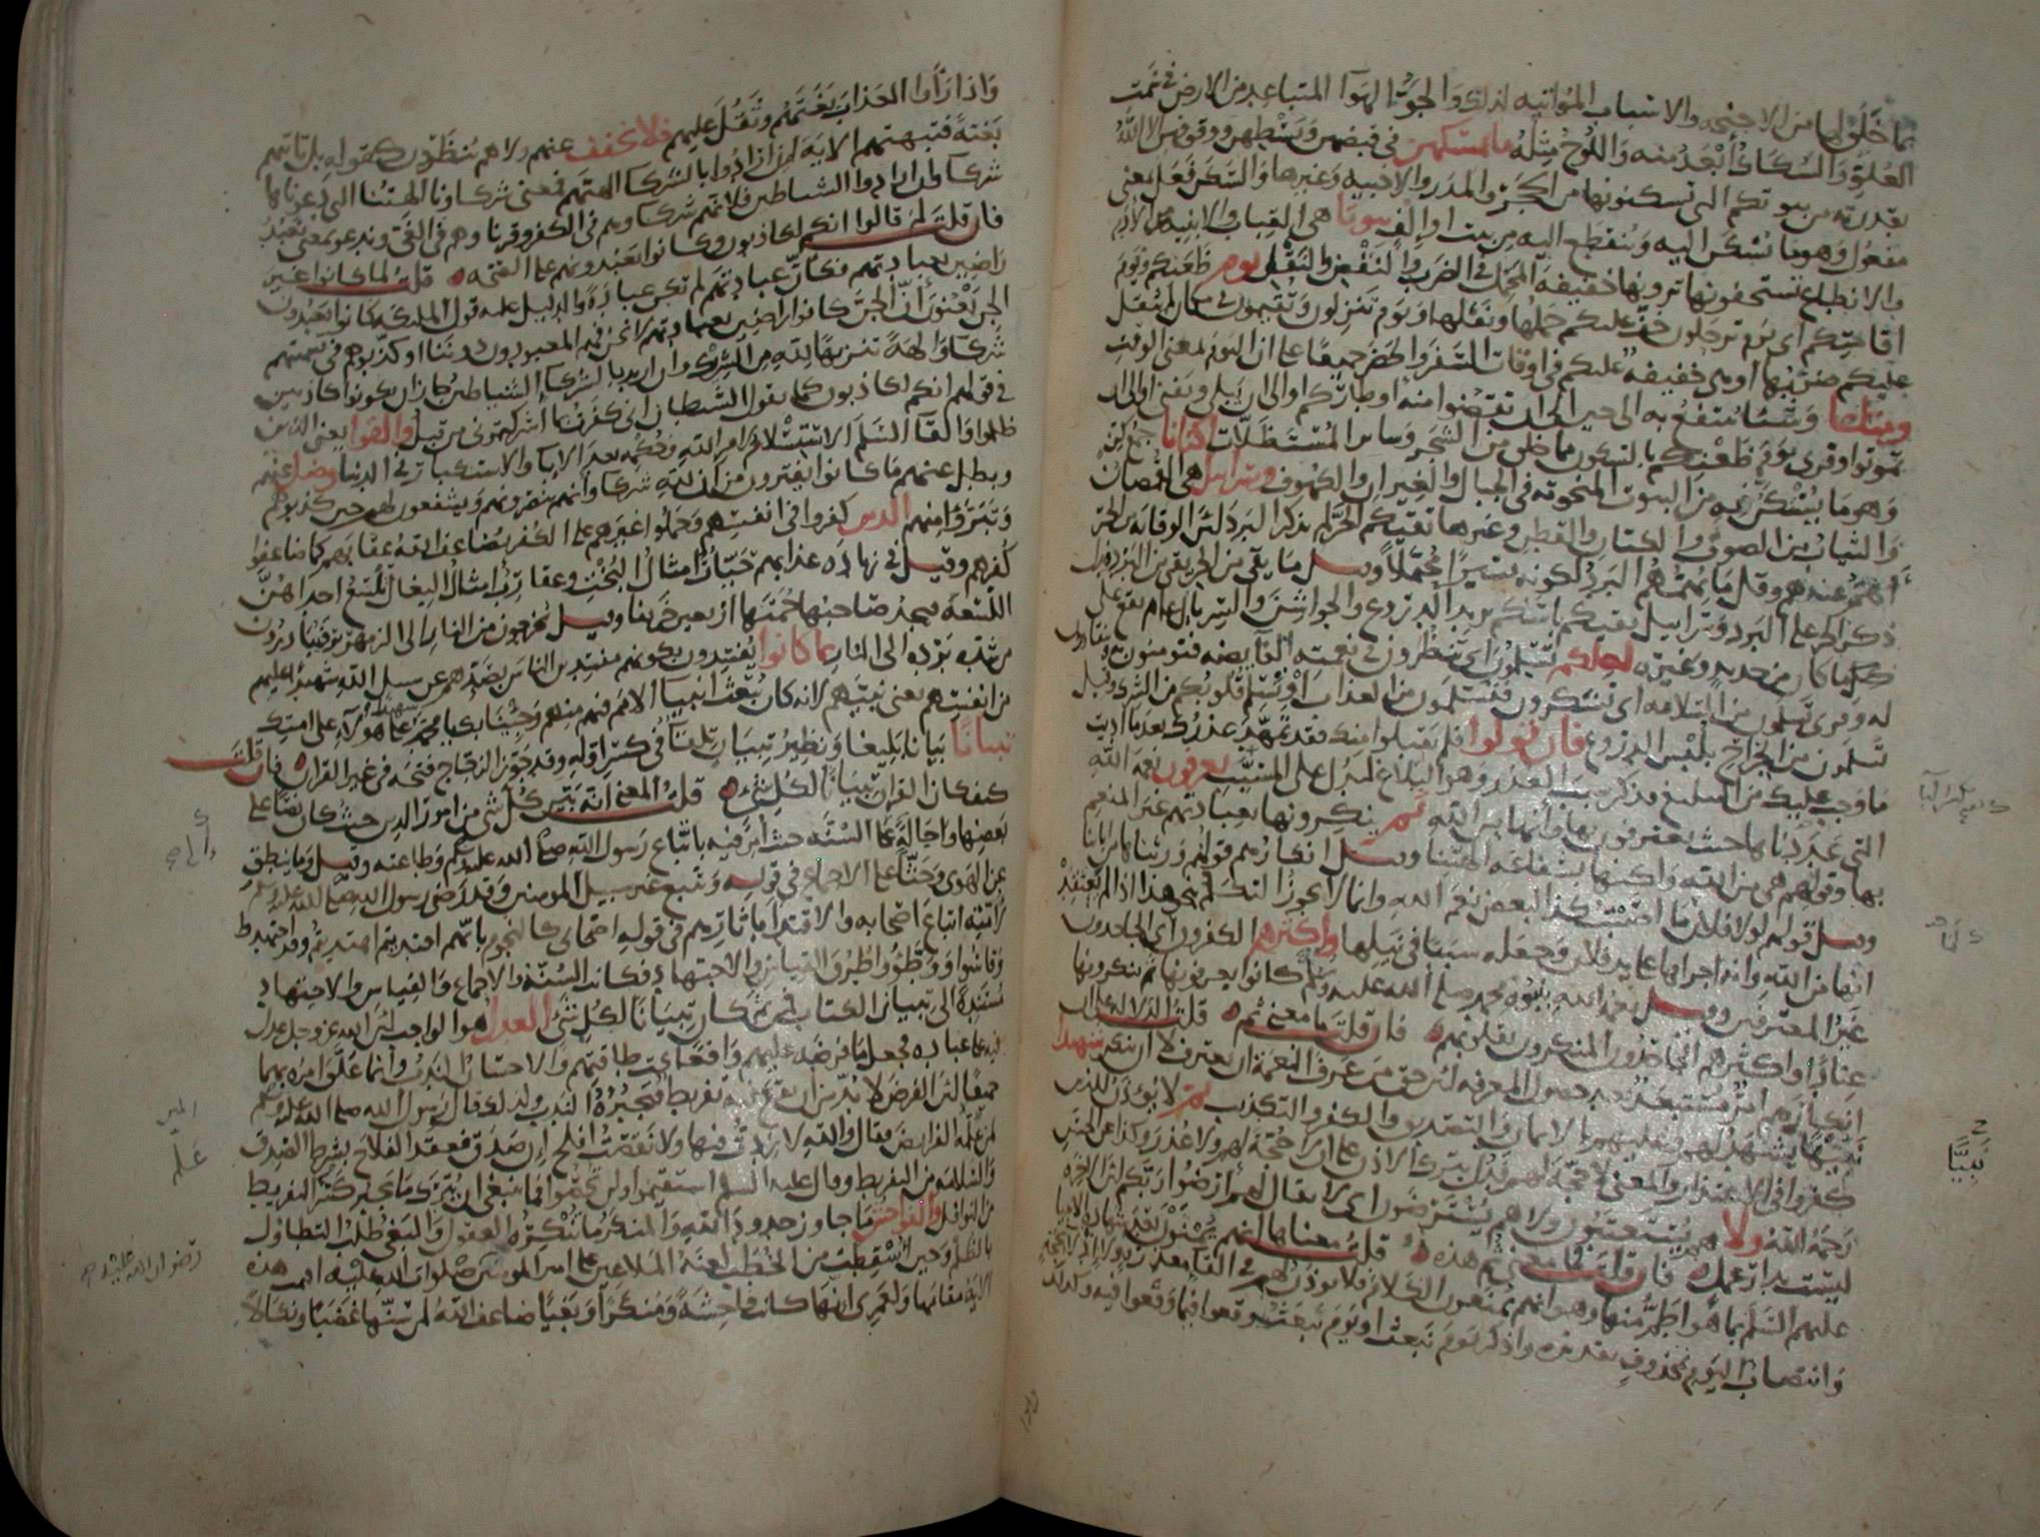 بما خلق لها من الاجنحه والاسباب المواتيه لذلك والجوّ الهوآ المتباعد من الارض في سمت
العلوّ والسكاك أبعد منه واللوح مثله ما يمسكهن في قبضهن وبسطهن ووقوفهن الا الله
بقدرته من بيوتكم التى تسكنونها من الحجر والمدر والاخبيه وغيرها والسكن فعل بمعنى
مفعول وهو ما يُسكن اليه وينقطع اليه من بيت او إلف بيوتا هى القباب والابنيه من الادم
والانطاع تستخفونها ترونها خفيفة المحمل في الضرب والنقض والنقل يوم ظعنكم ويوم
اقامتكم اى يوم ترحلون خفّ عليكم حملها ونقلها ويوم تنزلون وتقيمون في مكان لم يثقل
عليكم ضربها او هى خفيفه عليكم في اوقات السفر والحضر جميعًا على ان اليوم بمعنى الوقت
ومتاعا وشيئا ينتفع به الى حين الى ان تقضوا منه اوطاركم او الى ان يبلى ويفنى او الى ان
تموتوا وقرى يوم ظعنكم بالسكون مما خلق من الشجر وساير المستظلات اكنانا جمع كِنّ
وهو ما يستكن به من البيوت المنحوته في الجبال والغيران والكهوف سرابيل هى القمصان
والثياب من الصوف والكتان والقطن وغيرها تقيكم الحر لم يذكر البرد لان الوقايه من الحر
أهمّ عندهم وقل ما يهمّهم البرد لكونه يسيرا محتملا وقيل ما يقى من الحر يقى من البرد فدل
ذكر الحر على البرد وسرابيل تقيكم باسكم يريد الدروع والجواشن والسربال عام يقع على
كل ما كان من حديد وغيره لعلكم تسلمون اى تنظرون في نعمته الفايضه فتومنون به وتنقادون
له وقرى تسلمون من السلامه اى تشكرون فتسلمون من العذاب او تسلم قلوبكم من الشرك وقيل
تسلمون من الجراح بلبس الدروع فان تولوا فلم يقبلوا منك فقد تمهّد عذرك بعد ما اديت
ما وجب عليك من التبليغ فذكر سبب العذر وهو البلاغ ليدل على المسبّب يعرفون نعمة الله
التى عددناها حيث يعترفون بها وانها من الله ثم ينكرونها بعبادتهم غير المنعم
بها وقولهم هى من الله ولكنها بشفاعة الهتنا وقيل انكارهم قولهم ورثناها من ابائنا
وقيل قولهم لولا فلان ما اصبت كذا لبعض نعم الله وانما لا يجوز التكلم بنحو هذا اذا لم يعتقد
انها من الله وانه اجراها على يد فلان وجعله سببا في نيلها واكثرهم الكفرون اى الجاحدون
غير المعترفين وقيل نعمة الله نبوّة محمد صلى الله عليه وسلم كانوا يعرفونها ثم ينكرونها
عنادًا واكثرهم الجاحدون المنكرون بقلوبهم فان قلت ما معنى ثم قلت الدلالة على ان
انكارهم امر مستبعد بعد حصول المعرفه لان حق من عرف النعمة ان يعترف لا ان ينكر شهيدا
نبيّها يشهد لهم وعليهم بالايمان والتصديق والكفر والتكذيب ثم لا يؤذن للذين
كفروا في الاعتذار والمعنى لا حجة لهم فدل بترك الاذن على ان لا حجة لهم ولا عذر وكذا عن الحسن
رحمة الله ولا هم يستعتبون ولا هم يسترضون اى لا يقال لهم ارضوا ربكم لان الاخره
ليست بدار عمل فان قلت فما معنى ثم هذه قلت معناها انهم يمنون بعد شهادة الانبيا
عليهم السلم بما هو اطم منها وهو انهم يمنعون الكلام فلا يوذن لهم في القا معذرة ولا ادلاء بحجة
وانتصاب اليوم بمحذوف تقديره واذكر يوم نبعث او يوم نبعث وقعوا فيما وقعوا فيه وكذلك
بَيِّنًا
واذا رأوا العذاب بغتهم وثقل عليهم فلا يخفف عنهم ولا هم ينظرون كقوله بل تاتيهم
بغتة فتبهتهم الاية ان ارادوا بالشركا الهتهم فمعنى شركاونا الهتنا التى دعوناها
شركا وان ارادوا الشياطين فلانهم شركاوهم في الكفر وقرناوهم في الغى وندعو بمعنى نعبد
فان قلت لم قالوا انكم لكاذبون وكانوا يعبدونهم على الصحه قلت لما كانوا غير
راضين بعبادتهم فكانّ عبادتهم لم تكن عبادة والدليل عليه قول الملئكة كانوا يعبدون
الجن يعنون أنّ الجن كانوا راضين بعبادتهم لا نحن فهم المعبودون دوننا او كذبوهم في تسميتهم
شركا والهة تنزيها لله من الشريك وان اريد بالشركا الشياطين جاز ان يكونوا كاذبين
في قولهم انكم لكاذبون كما يقول الشيطان انى كفرت بما اشركتمونى من قبل والقوا يعنى الذين
ظلموا والقآ السلم الاستسلام لامر الله وحكمه بعد الابا والاستكبار في الدنيا وضل عنهم
وبطل عنهم ما كانوا يفترون من أن لله شركا وانهم ينصرونهم ويشفعون لهم حين كذبوهم
وتبرؤا منهم الذين كفروا في انفسهم وحملوا غيرهم على الكفر يضاعف الله عقابهم كما ضاعفوا
كفرهم وقيل في زيادة عذابهم حيّات امثال البخت وعقارب امثال البغال تلسع احداهنّ
اللسعة فيجد صاحبها حمتها اربعين خريفا وقيل يخرجون من النار الى الزمهرير فيبادرون
من شدة برده الى النار بما كانوا يفسدون بكونهم مفسدين الناس بصدّهم عن سبيل الله شهيدا عليهم
من انفسهم يعنى نبيّهم لانه كان يبعث انبيا الامم فيهم منهم وجئنا بك يا محمد شهيدا على هؤلآء على امتك
تبيانا بيانا بليغا ونظير تبيان تلقآ في كسر اوّله وقد جوّز الزجاج فتحه في غير القران فان قلت
كيف كان القران تبيانا لكل شىء قلت المعنى انه بيّن كل شى من امور الدين حيث كان نصّا على
بعضها واحالة على السنّه حيث أمر فيه باتّباع رسول الله صلى الله عليه وسلم وطاعته وقيل وما ينطق
عن الهوى وحثّا على الاجماع في قوله ويتبع غير سبيل المومنين وقد رضى رسول الله صلى الله عليه وسلم
لامّته اتباع اصحابه والاقتدا باثارهم في قوله اصحابى كالنجوم بايّهم اقتديتم اهتديتم وقد اجتهدوا
وقاسوا ووطّؤوا طرق القياس والاجتهاد فكانت السنّة والاجماع والقياس والاجتهاد
مستندة الى تبيان الكتاب فمن ثم كان تبيانا لكل شئ العدل هو الواجب لان الله عز وجل عدل
فيه على عباده فجعل ما فرضه عليهم واقعًا تحت طاقتهم والاحسان الندب وانما علّق امره بهما
جميعًا لان الفرض لا بدّ من أن يقع فيه تفريط فيجبره الندب ولذلك قال رسول الله صلى الله عليه وسلم
لمن علّمه الفرايض فقال والله لا زدت فيها ولا نقصت افلح إن صدق فعقد الفلاح بشرط الصدق
والسلامه من التفريط وقال عليه السلم استقيموا ولن تحصوا فما ينبغى ان يترك ما يجبر كسر التفريط
من النوافل والفواحش ما جاوز حدود الله والمنكر ما تنكره العقول والبغى طلب التطاول
بالظلم وحين اسقطت من الخطب لعنة الملاعين على امير المومنين صلوات الله عليه اقيمت هذه
الاية مقامها ولعمرى انها كانت فاحشة ومنكرا وبغيا ضاعف الله لمن سنّها غضبا ونكالا